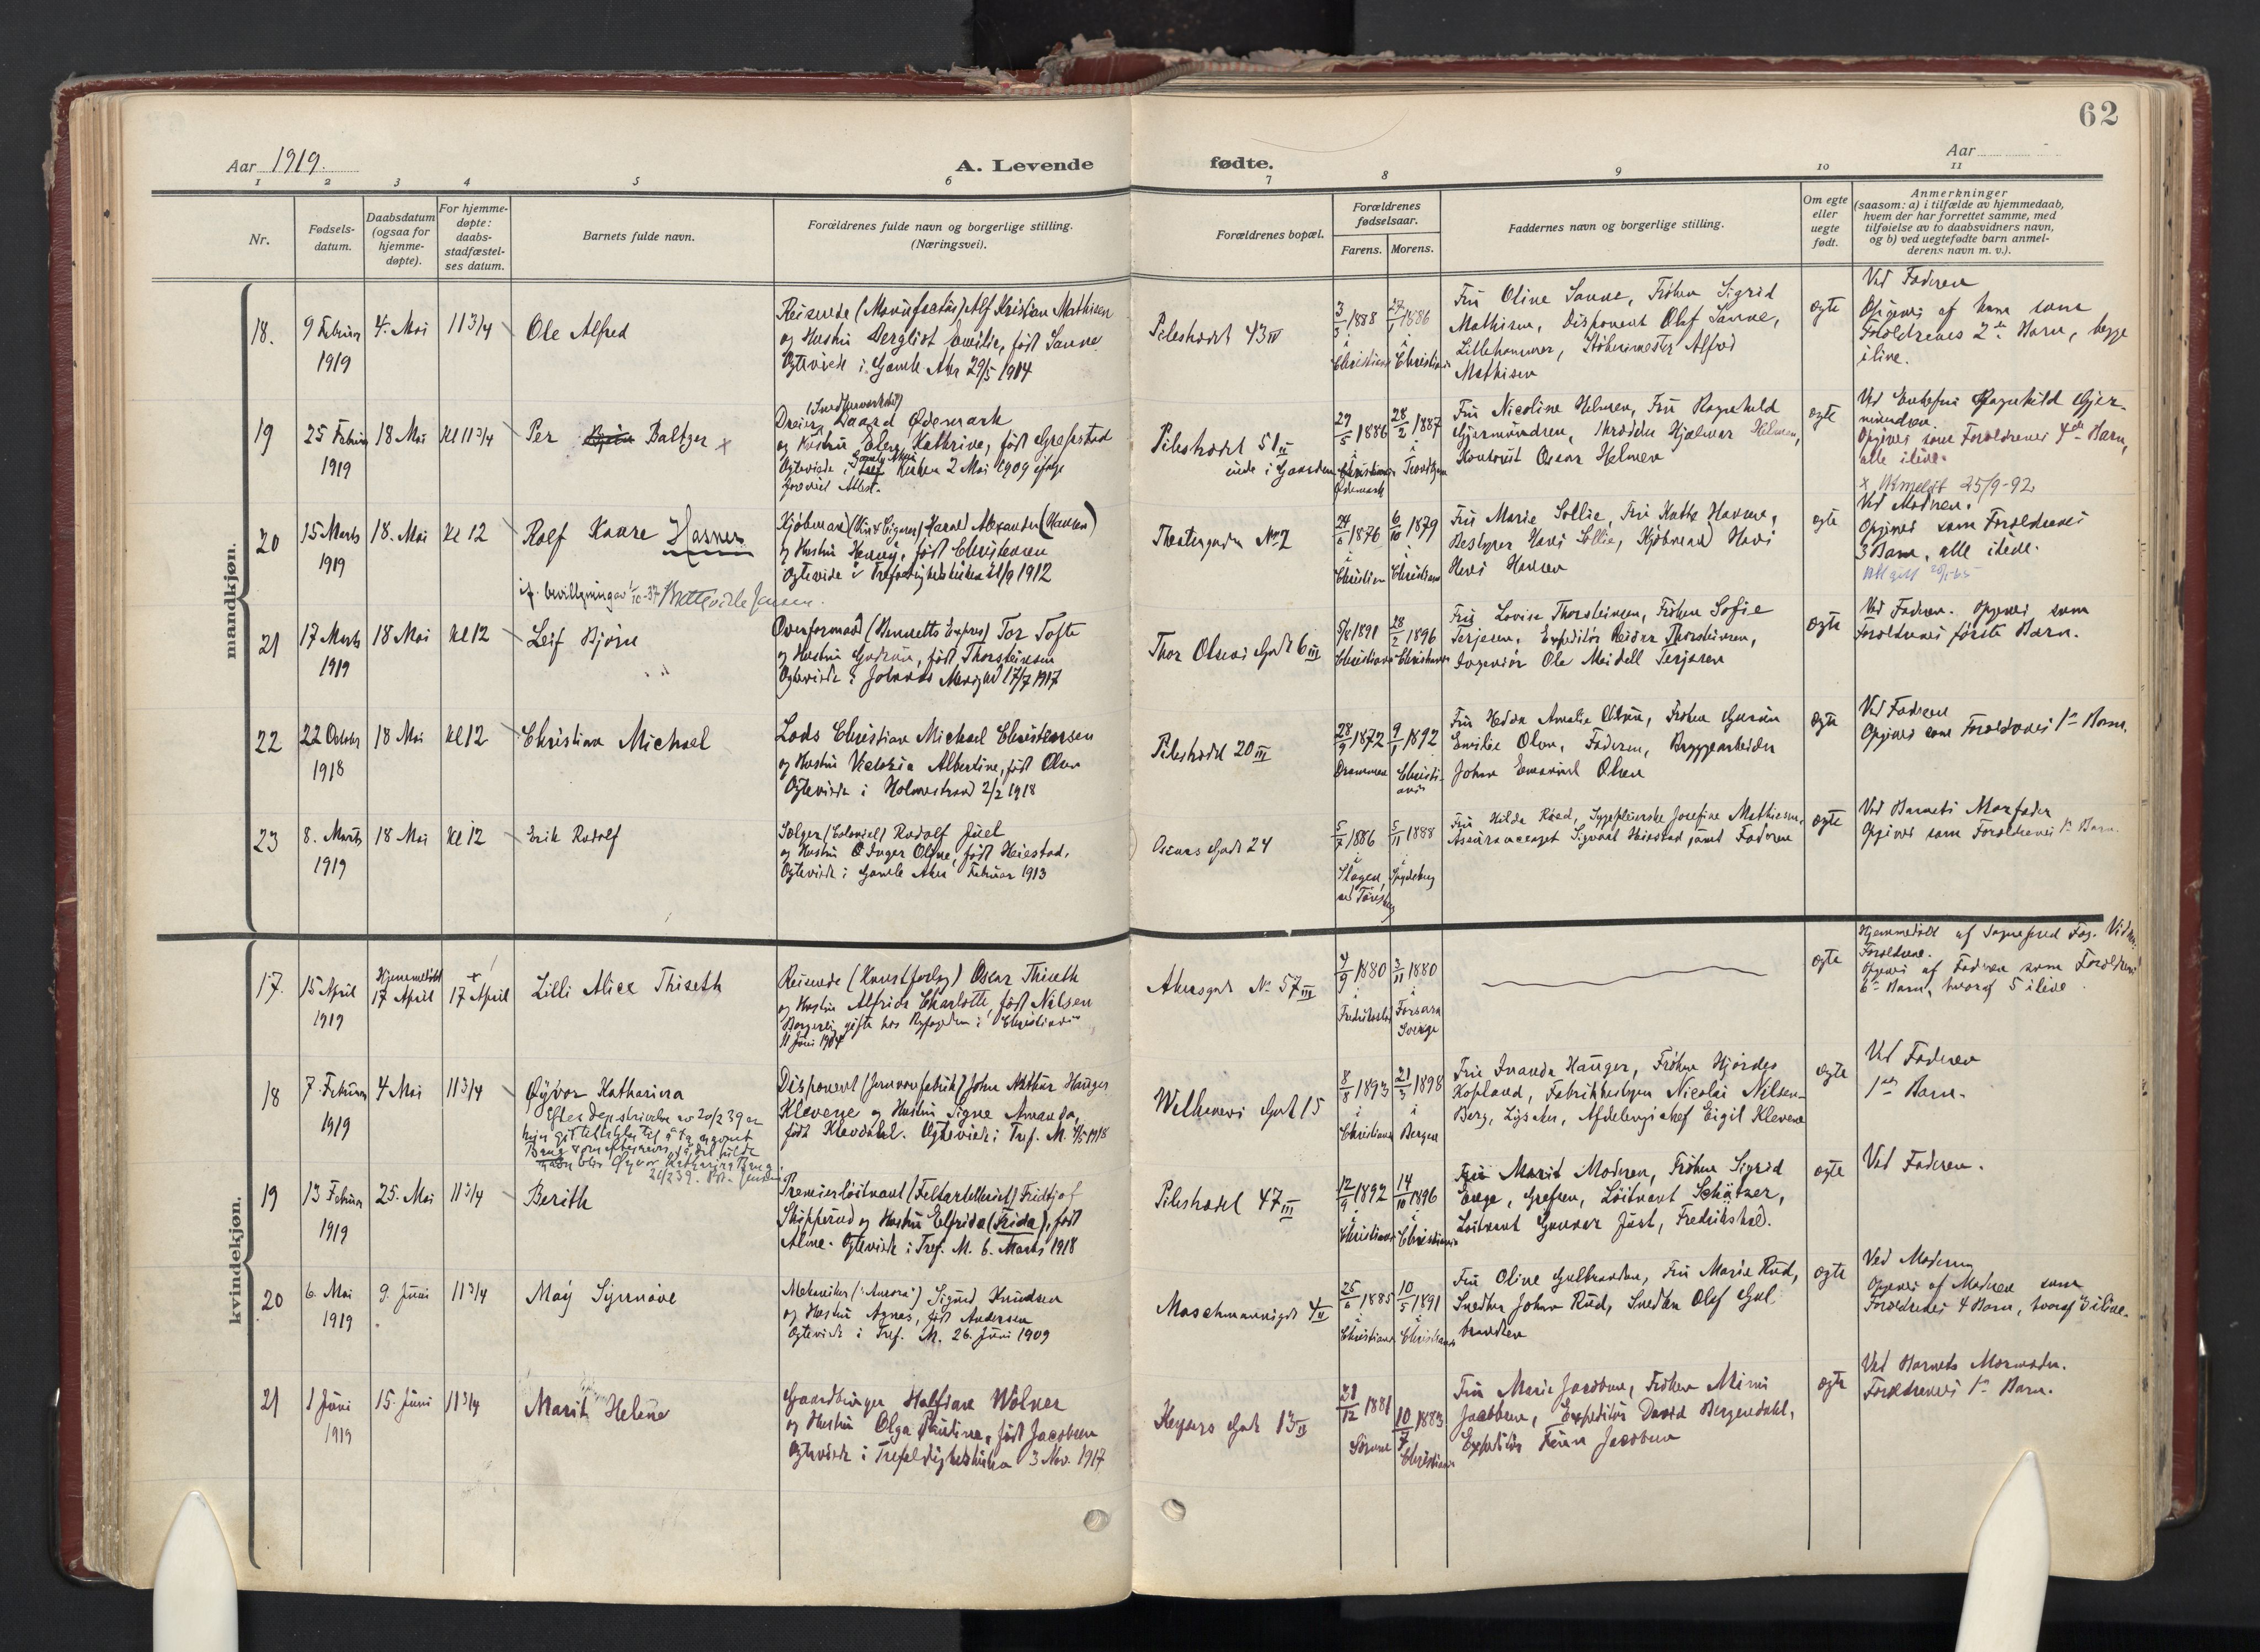 62
Aar 1919.
A. Levende
fødte.
Aar
1 2 3 4 5 6 7 8 9 10 11
Nr.
Fødsels-
datum.
Daabsdatum
(ogsaa for
hjemme-
døpte).
For hjemme-
døpte:
daabs-
stadfæstel-
ses datum.
Barnets fulde navn.
Forældrenes fulde navn og borgerlige stilling.
(Næringsvei).
Forældrenes bopæl.
Forældrenes
fødselsaar.
Farens. Morens.
Faddernes navn og borgerlige stilling.
Om egte
eller
uegte
født.
Anmerkninger
(saasom: a) i tilfælde av hjemmedaab,
hvem der har forrettet samme, med
tilføielse av to daabsvidners navn,
og b) ved uegtefødte barn anmel-
derens navn m. v.).
mandkjøn.
18.
9 Februar
1919
4. Mai
11 3/4
Ole Alfred
Reisende (Manufactur) Alf Kristian Mathisen
og Hustru Bergliot Emilie, født Sanne
Ogteviede i Gamle Aker 29/5 1914
Pilestrædet 43 IV
3/3 1888
Christiania
1886
Christiania
Fru Oline Sanne, Frøken Sigrid
Mathisen, Disponent Olaf Sanne,
Lillehammer, Alfred
Mathisen
ogte
Ved Faderen
Opgives af ham som
Forældrenes 2de Barn, begge
ilive.
19
25 Februar
1919
18 Mai
Kl 11 3/4
Per Baltzer x
Dreier Ødemark
og Hustru Kathrine, født Grefsrud
Ogteviede i Gamle Aker Kirken 2 Mai 1909 ifølge
forevist Attest.
Pilestrædet 51 II
inde i Gaarden
29/5 1886
Ødemark
28/2 1887
Trondhjem
Fru Nicoline Helmen, Fru Ragnhild
Gjermundsen, Hjalmar Helmen,
Kontorist Oscar Helmen
ogte
Ved Enkefru Ragnhild Gjer-
mundsen.
Opgives som Forældrenes 4de Barn,
alle ilive.
x Utmeldt 25/9-92
20
15 Marts
1919
18. Mai
Kl 12
Rolf Kaare Hasner
if. bevillgning av 1/10-37
Kjøbmand (Vin & Cigarer) Harald Alexander (Hansen)
og Hustru Henny, født Christensen
Ogteviede i Trefoldighedskirken 1912
Theatergaden No 2
24/6 1876
Christiania
6/10 1879
Christiania
Fru Marie Sollie, Fru Kathe Hansen,
Bestyrer Hans Sollie, Kjøbmand Hans
Hansen
ogte
Ved Moderen.
Opgives som Forældrenes
3 Barn, alle ilive.
21
17 Marts
1919
18 Mai
Kl 12
Leif Bjørn
Overformand (Bennetts Expres) Tor Tofte
og Hustru Gudrun, født Thorsteinsen
Ogteviede i Johannes Menighed 17/7 1917
Thor Olsens Gade 6 III
5/8 1891
Christiania
28/2 1896
Christiania
Fru Lovise Thorsteinsen, Frøken Sofie
Terjesen, Expeditør Reidar Thorsteinsen,
Ingeniør Ole Meidell Terjesen
ogte
Ved Faderen. Opgives som
Forældrenes første Barn.
22
22 October
1918
18 Mai
Kl 12
Christian Michael
Lods Christian Michael Christensen
og Hustru Victoria Albertine, født Olsen
Ogteviede i Holmestrand 2/2 1918
Pilestrædet 20 III
28/9 1872
Drammen
9/1 1892
Christi-
ania
Fru Hedda Amalie Olsen, Frøken Gunvor
Emilie Olsen, Faderen, Bryggearbeider
Johan Emanuel Olsen
ogte
Ved Faderen
Opgives som Forældrenes 1ste Barn.
23
8. Marts
1919
18 Mai
Kl 12
Erik Rudolf
Sælger (Colonial) Rudolf Juel
og Hustru Inger Oline, født Heiestad.
Ogteviede i Gamle Aker Februar 1913
Oscars Gade 24
5/7 1886
Slagen
ved Tønsberg
5/11 1888
Spydeberg
Fru Hilda Roed, Sygepleierske Josefine Mathisen,
Assuranceagent Sigvart Heiestad samt Faderen
ogte
Ved Barnets Morfader
Opgives som Forældrenes 1ste Barn.
kvindekjøn.
17.
15 April
1919
Hjemmedøbt
17 April
17 April
Lilli Alice Thiseth
Reisende (Kunstforlag) Oscar Thiseth
og Hustru Alfrida Charlotte, født Nilsen
Borgerlig gifte hos Byfogden i Christiania
11 Juni 1904
Akersgade No 57 III
4/9 1880
Fredrikstad
3/11 1880
Sverige
ogte
Hjemmedøbt af Sogneprest
Forældrene.
Opgives af Faderen som Forældrenes
6te Barn, hvoraf 5 ilive
18
7. Februar
1919
4 Mai
11 3/4
Øyvor Katharina
Disponent (Jernvarefabrik) John Arthur Hauger
Klevene og Hustru Signe Amanda,
født Klevdahl. Ogteviede i Tref. M. 1918
Wilhelms Gade 15
8/8 1893
Christiania
21/3 1898
Bergen
Fru Amanda Hauger, Frøken Hjørdis
Kopland, Fabrikbestyrer Nicolai Nilsen-
Berg, Lysaker, Afdelingschef Eigil Klevene
ogte
Ved Faderen
1ste Barn.
19
13 Februar
1919
25. Mai
11 3/4
Berith
Premierløitnant (Feltartilleriet) Fridtjof
Skipperud og Hustru Elfrida (Frida), født
Aline. Ogteviede i Tref. M. 6. Marts 1918
Pilestrædet 47 III
12/9 1892
Christiania
14/10 1896
Christiania
Fru Marit Modesen, Frøken Sigrid
Enge, Grefsen, Løitnant Schätzer,
Løitnant Gunnar Just, Fredrikshald.
ogte
Ved Faderen.
20
6. Mai
1919
9. Juni
11 3/4
May Synnøve
Mekaniker ("Aurora") Sigurd Knudsen
og Hustru Agnes, født Andersen
Ogteviede i Tref. M. 26. Juni 1909
Maschmannsgd 4 II
25/6 1885
Christiania
10/5 1891
Christiania
Fru Oline Gulbrandsen, Fru Marie Rud,
Snedker Johan Rud, Snedker Olaf Gul
brandsen
ogte
Ved Moderen
Opgives af Moderen som
Forældrenes 4 Barn, hvoraf 3 ilive.
21
1 Juni
1919
15. Juni
11 3/4
Marit Helene
Gaardbruger Halfdan Wølner
og Hustru Olga Pauline, født Jacobsen
Ogteviede i Trefoldighedskirken 3 Nov. 1917
Keysers Gade 13 II
31/12 1881
10/7 1883
Christiania
Fru Marie Jacobsen, Frøken Mimi
Jacobsen, Expeditør David Bergendahl,
Expeditør Jacobsen
ogte
Ved Barnets Mormoder.
Forældrenes 1ste Barn.